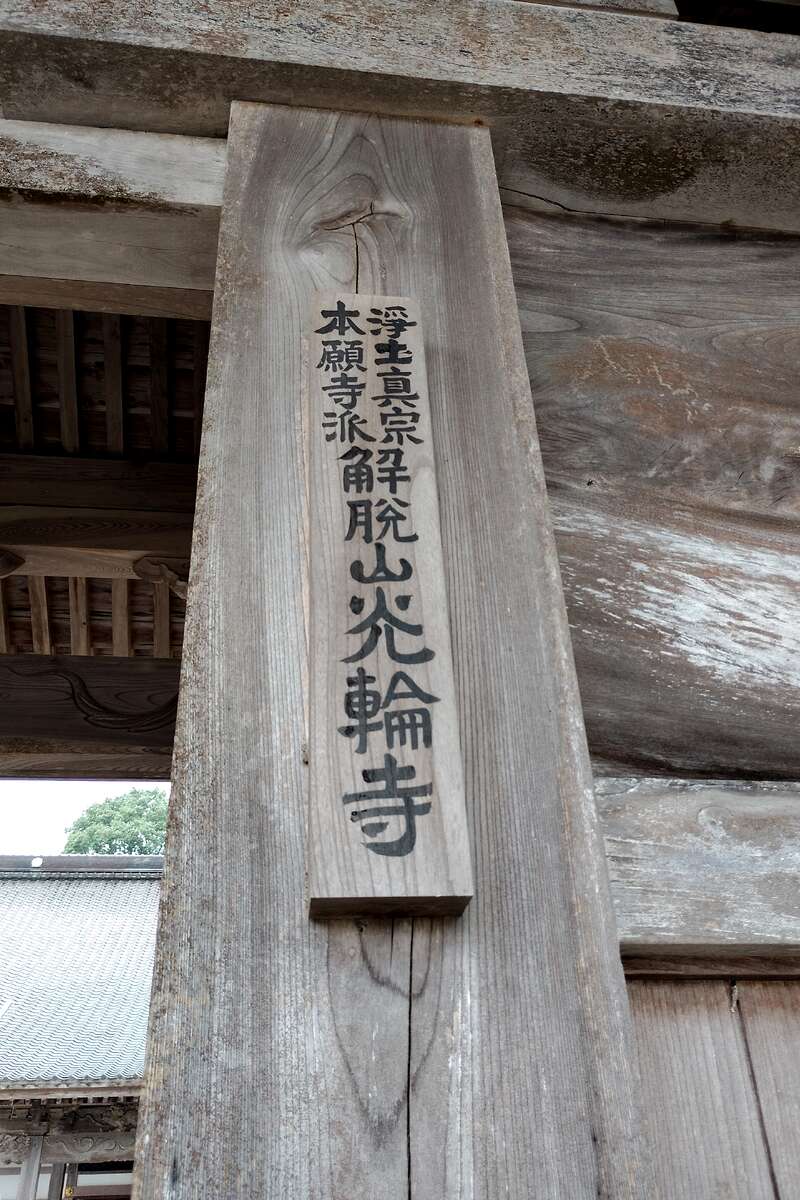 浄土真宗
本願寺派
解脱山光輪寺